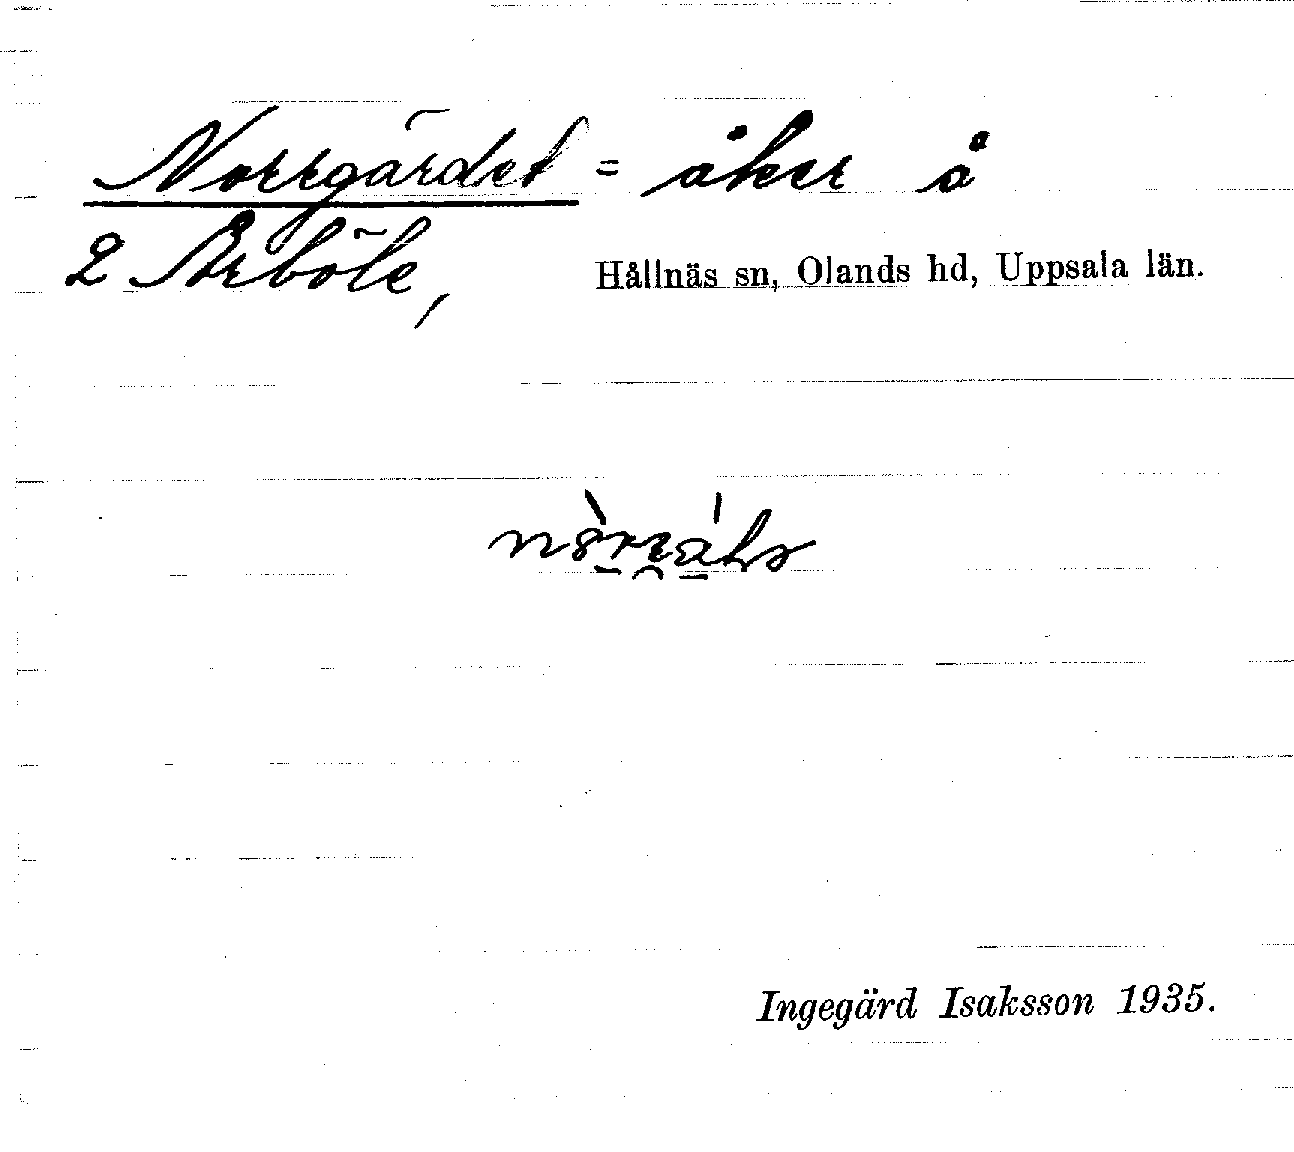 Norrgärdet = åker å
2 Årböle,
Hållnäs sn, Olands hd, Uppsala län.
Ingegärd Isaksson 1935.